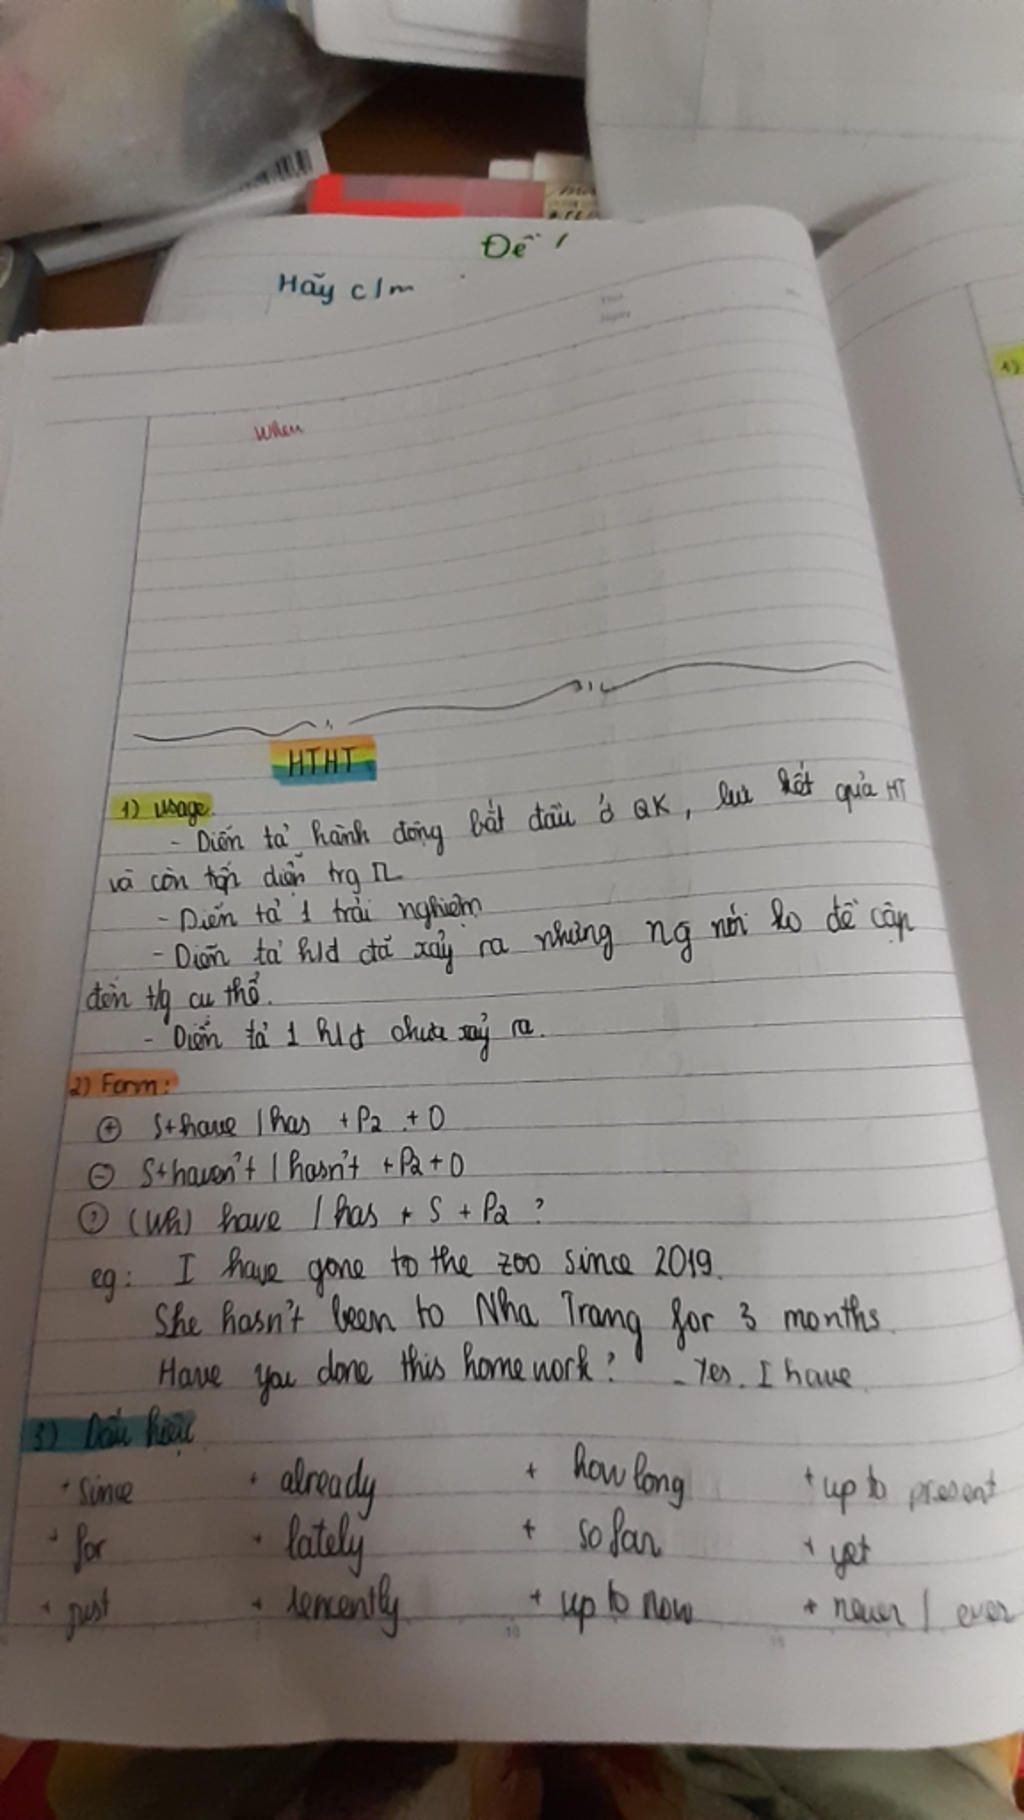 Đề 1
Hãy c/m
When
HTHT
1) Usage.
- Diễn tả hành động bắt đầu ở QK, lưu kết quả HT
và còn diễn trg TL
- Diễn tả 1 trải nghiệm
- Diễn tả h/đ đã xảy ra nhưng ng nói ko đề cập
đến t/g cụ thể.
- Diễn tả 1 h/đ chưa xảy ra.
2) Form:
(+) S+have / has + P2 + O
(-) S+haven't / hasn't + P2 + O
(?) (Wh) have / has + S + P2 ?
eg: I have gone to the zoo since 2019.
She hasn't been to Nha Trang for 3 months.
Have you done this homework? - Yes. I have
3) Dấu hiệu
+ since + already + how long + up to present
+ for + lately + so far + yet
+ just + rencently + up to now + never / ever